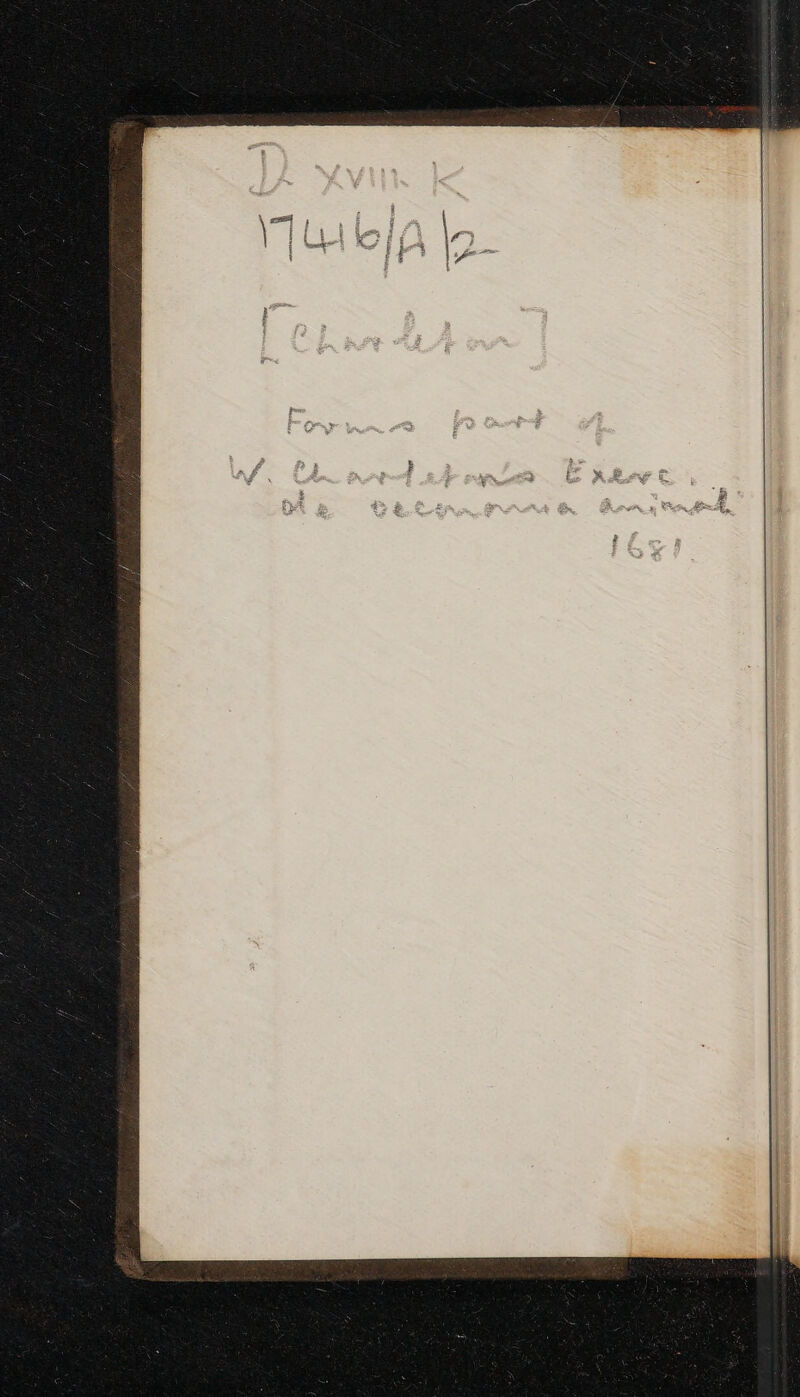 D. XVIII. K
17416/A/2
[Charleton]
Forms part of
W. Charleton's Exerc.
de oeconomia animal
1681.